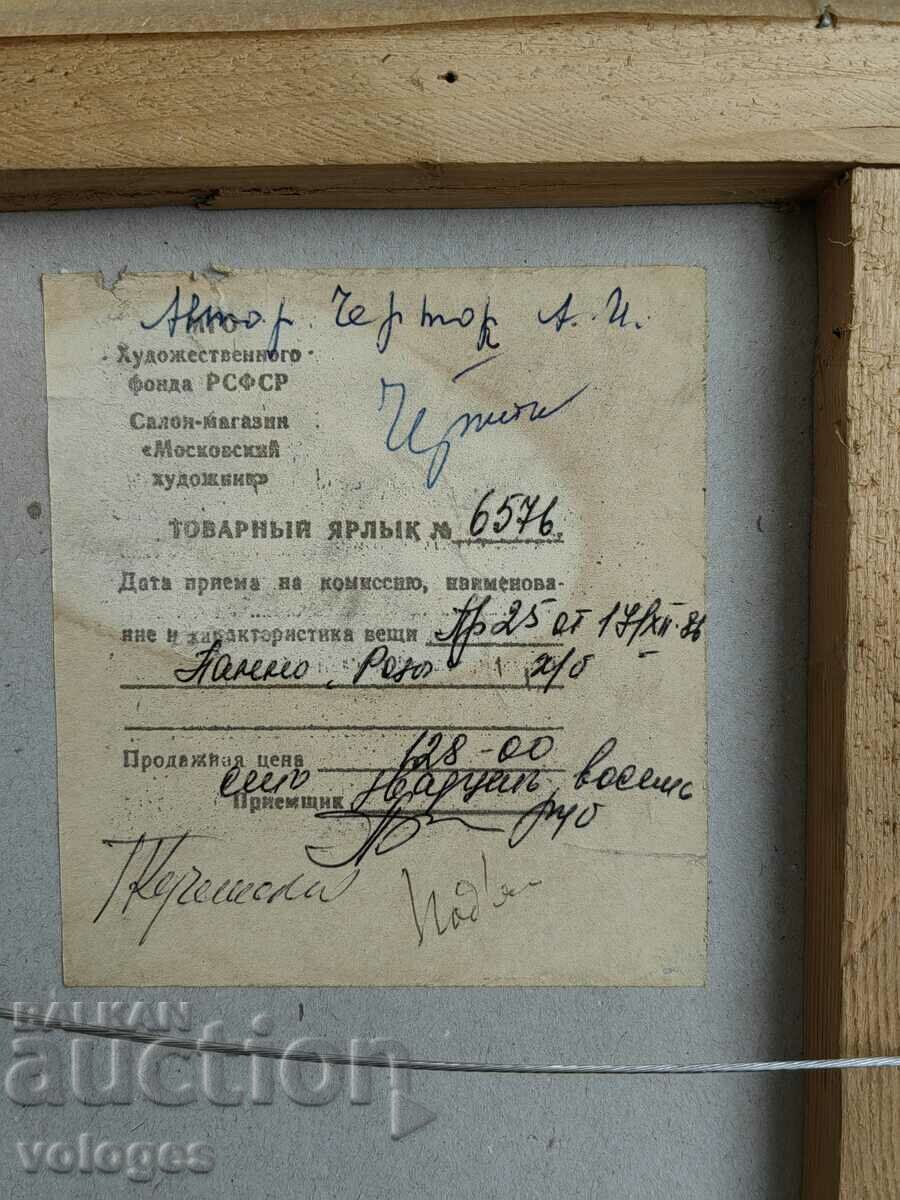 Автор Черток А. И.
МГО
Художественного
фонда РСФСР
Салон-магазин
«Московский
художник»
ТОВАРНЫЙ ЯРЛЫК № 6576
Дата приема на комиссию, наименова-
ние и характеристика вещи Пр 25 от 17/XII-86
Панно „Розы" х/б
Продажная цена 128-00
сто двадцать восемь
Приемщик руб
BALKAN
auction
vologes